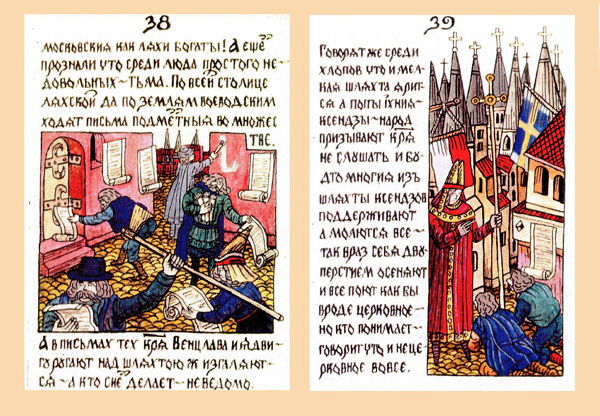 38
московския как ляхи богаты! А ещѣ
прознали что среди люда простого не-
довольных ~ тьма. По всей столице
ляхской да по землям воеводским
ходят письма подмѣтныя во множе-
стве.
А в письмах тех кр҃я Венцлава и Ядви-
гу ругают над шляхтою ж изгаляют-
ся ~ а кто сие делает ~ неведомо.
39
Говорят же среди
хлопов что и мел-
кая шляхта ярит-
ся а попы ихния ~
ксендзы ~ народ
призывают кр҃я
не слушать и бу-
дто многия изъ
шляхты ксендзов
поддерживают
а молются все ~
так враз себя дву-
перстием осеняют
и все поют как бы
вроде церковное ~
но кто понимает ~
говорит что и не це-
рковное вовсе.